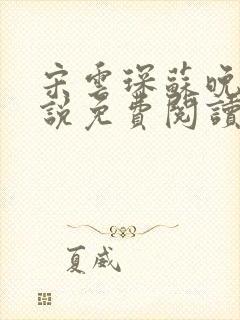 宋雲琛蘇晚
說免費閱讀
夏威